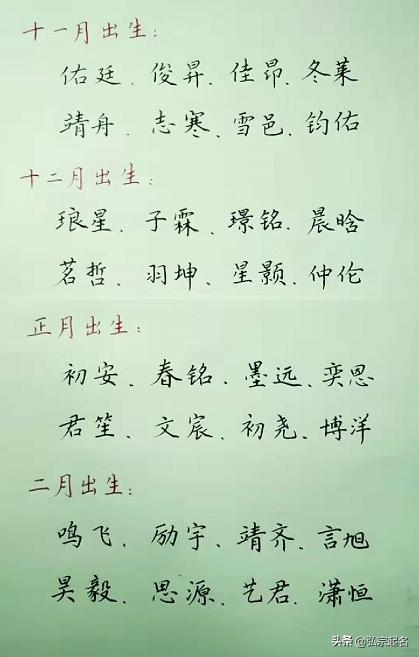 十一月出生:
佑廷、俊昇、佳昂、冬莱
靖舟、志寒、雪邑、钧佑
十二月出生:
琅星、子霖、璟铭、晨晗
茗哲、羽坤、星颢、仲伦
正月出生:
初安、春铭、墨远、奕思
君笙、文宸、初尧、博洋
二月出生:
鸣飞、励宇、靖齐、言旭
昊毅、思源、艺君、潇恒
头条 @弘宗起名